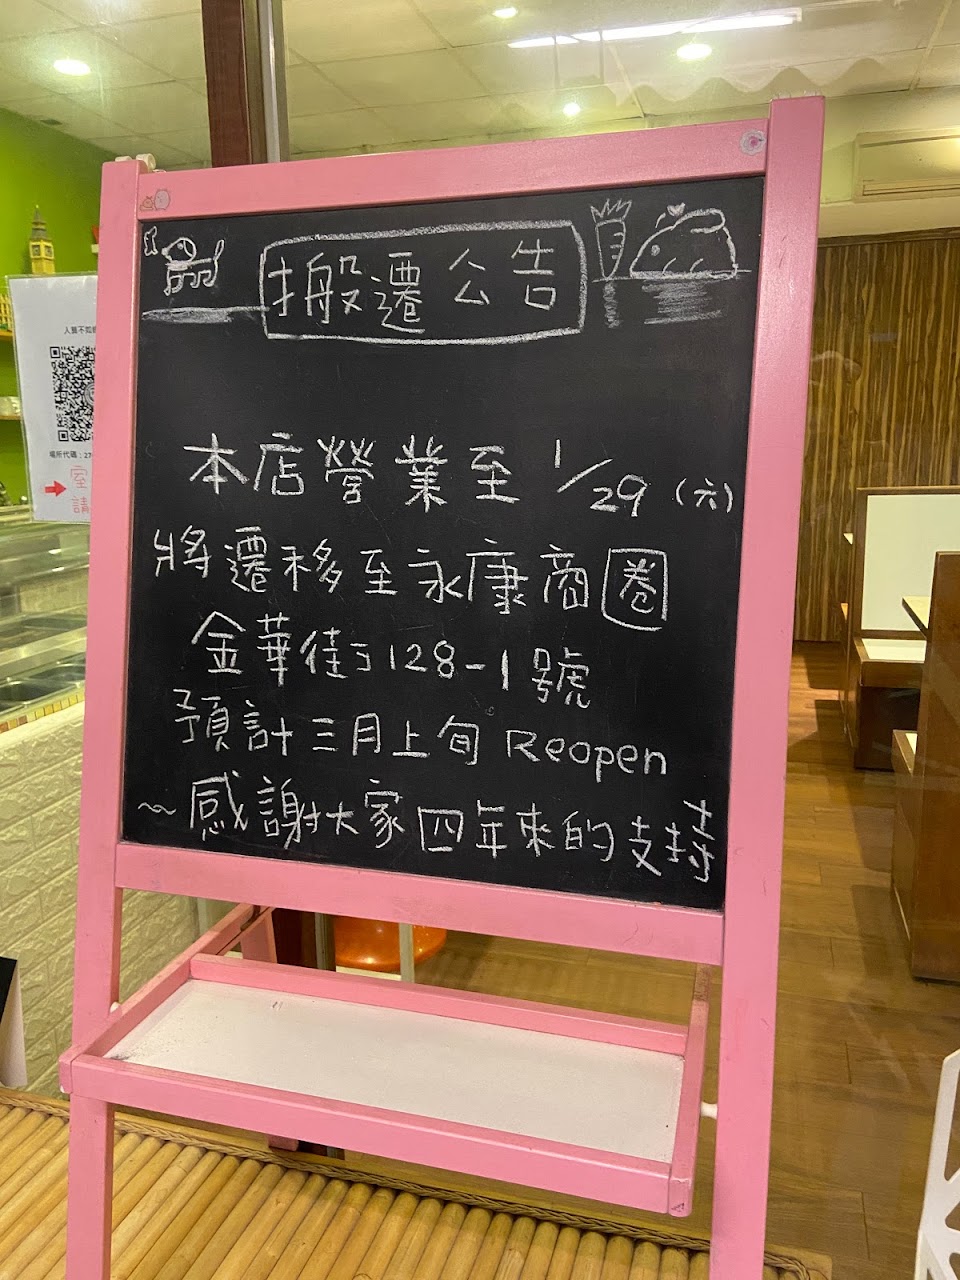 搬遷公告
本店營業至 1/29 (六)
將遷移至永康商圈
金華街128-1號
預計三月上旬 Reopen
~感謝大家四年來的支持
場所代碼:27
室
請